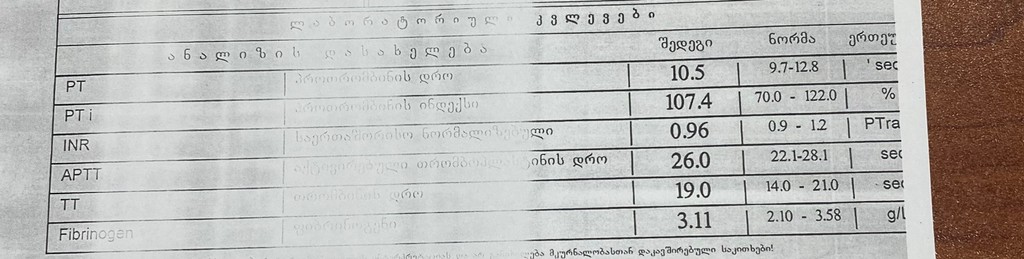 ლაბორატორიული კვლევები
ანალიზის დასახელება შედეგი ნორმა
PT პროთრომბინის დრო 10.5 9.7-12.8 sec
PT i პროთრომბინის ინდექსი 107.4 70.0 - 122.0 %
INR საერთაშორისო ნორმალიზებული 0.96 0.9 - 1.2 PTra
APTT აქტივირებული თრომბოპლასტინის დრო 26.0 22.1-28.1 sec
TT თრომბინის დრო 19.0 14.0 - 21.0 sec
Fibrinogen ფიბრინოგენი 3.11 2.10 - 3.58 g/l
მკურნალობასთან დაკავშირებული საკითხები!